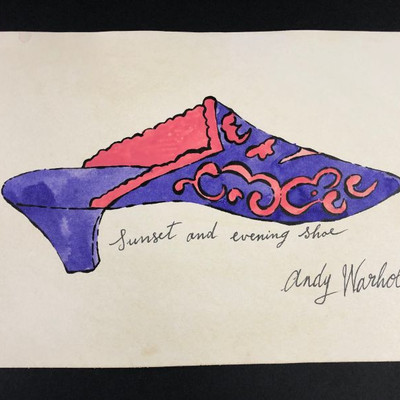 Sunset and evening shoe
Andy Warhol